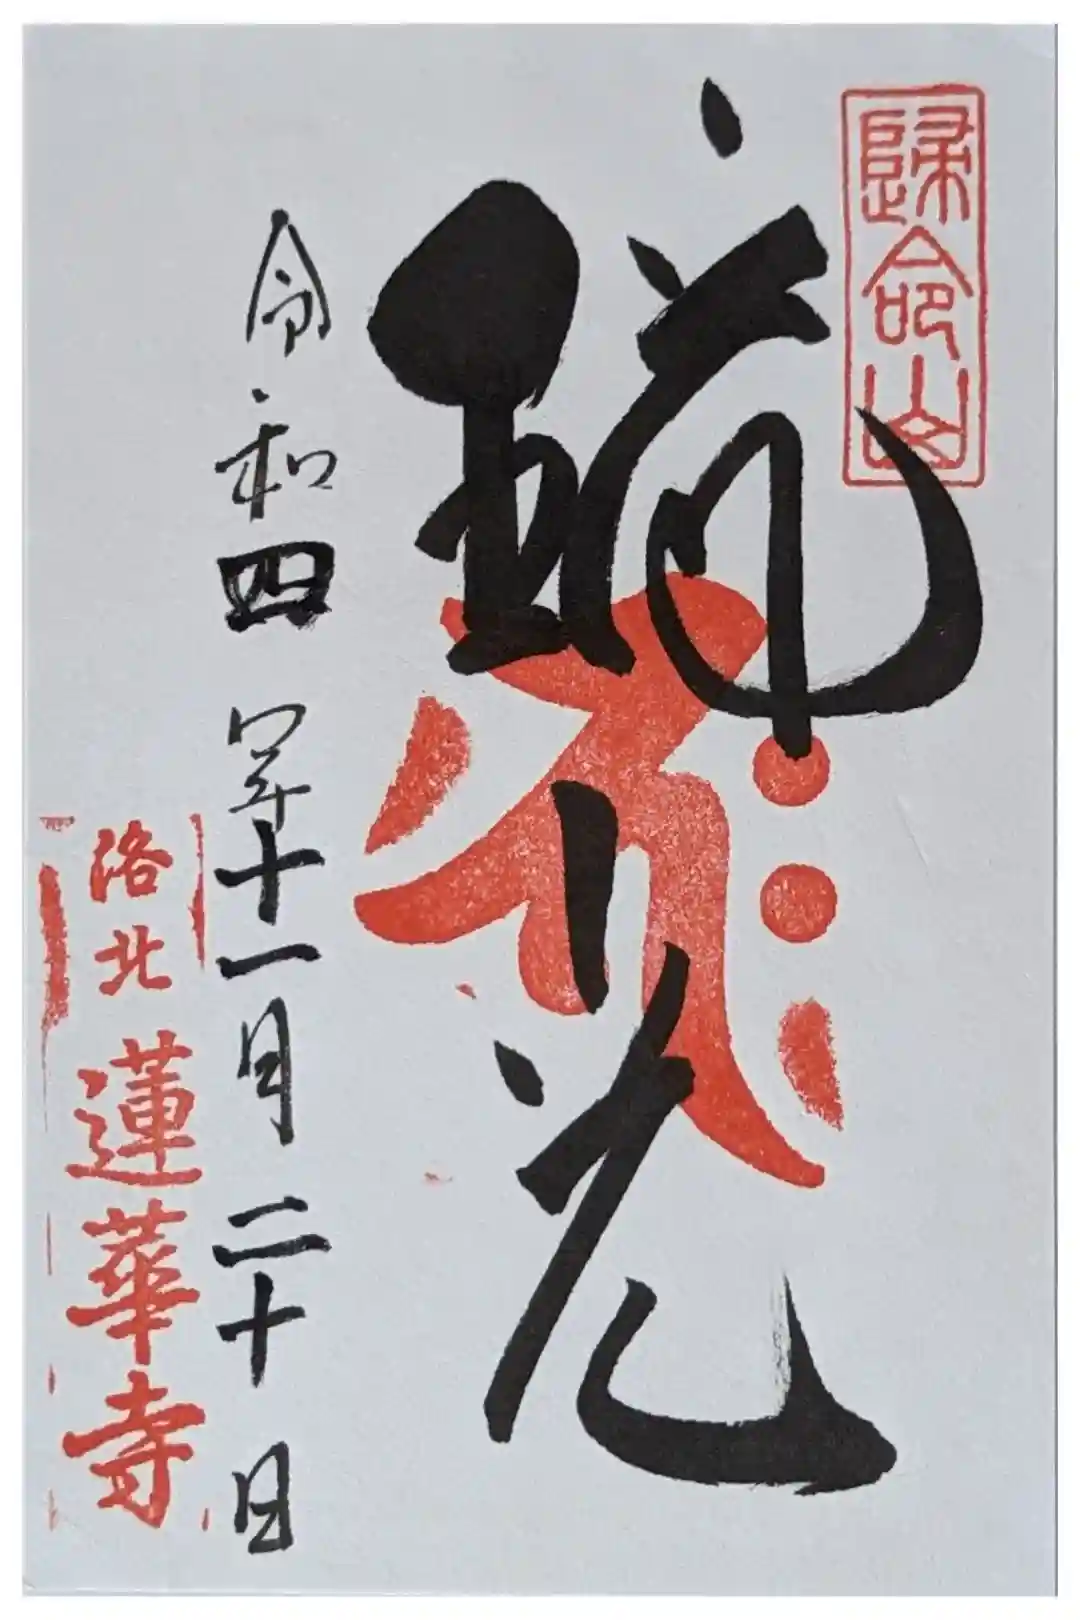 歸命山
光
令和四年十一月二十日
洛北蓮華寺